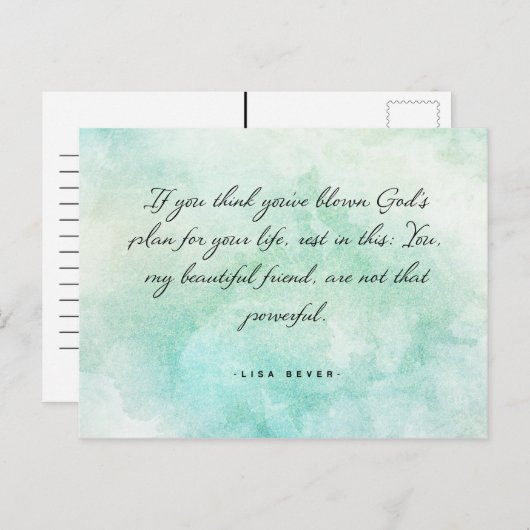 If you think you've blown God's
plan for your life, rest in this: You,
my beautiful friend, are not that
powerful.
-LISA BEVER-